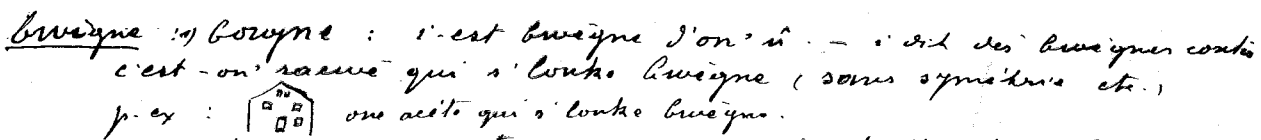 bwègne :1) borgne : i-est bwègne d'on' û. – i dit dès bwègnes contes
c'est-on' qui s' louke bwègne (sans symétrie etc.)
p. ex : one qui s' louke bwègne.